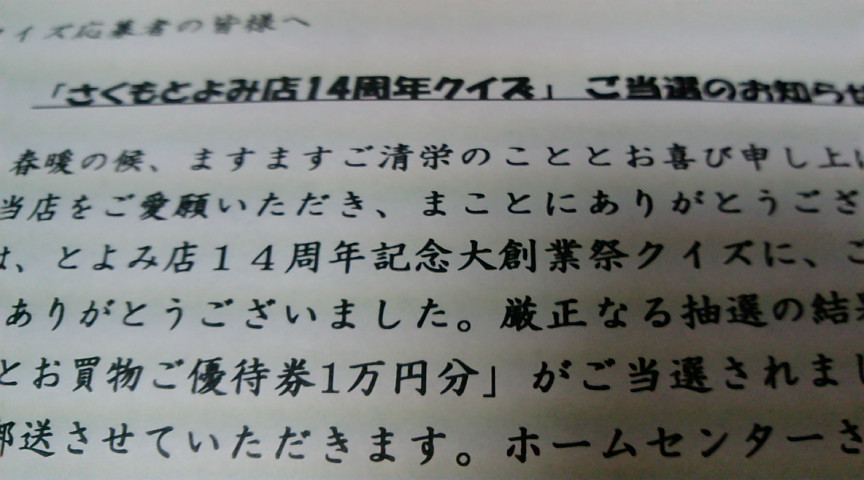 イズ応募者の皆様へ
「さくもとよみ店14周年クイズ」 ご当選のお知らせ
春暖の候、ますますご清栄のこととお喜び申し上
当店をご愛願いただき、まことにありがとうござ
は、とよみ店14周年記念大創業祭クイズに、ご
ありがとうございました。厳正なる抽選の結果
とお買物ご優待券1万円分」がご当選されまし
郵送させていただきます。ホームセンターさ